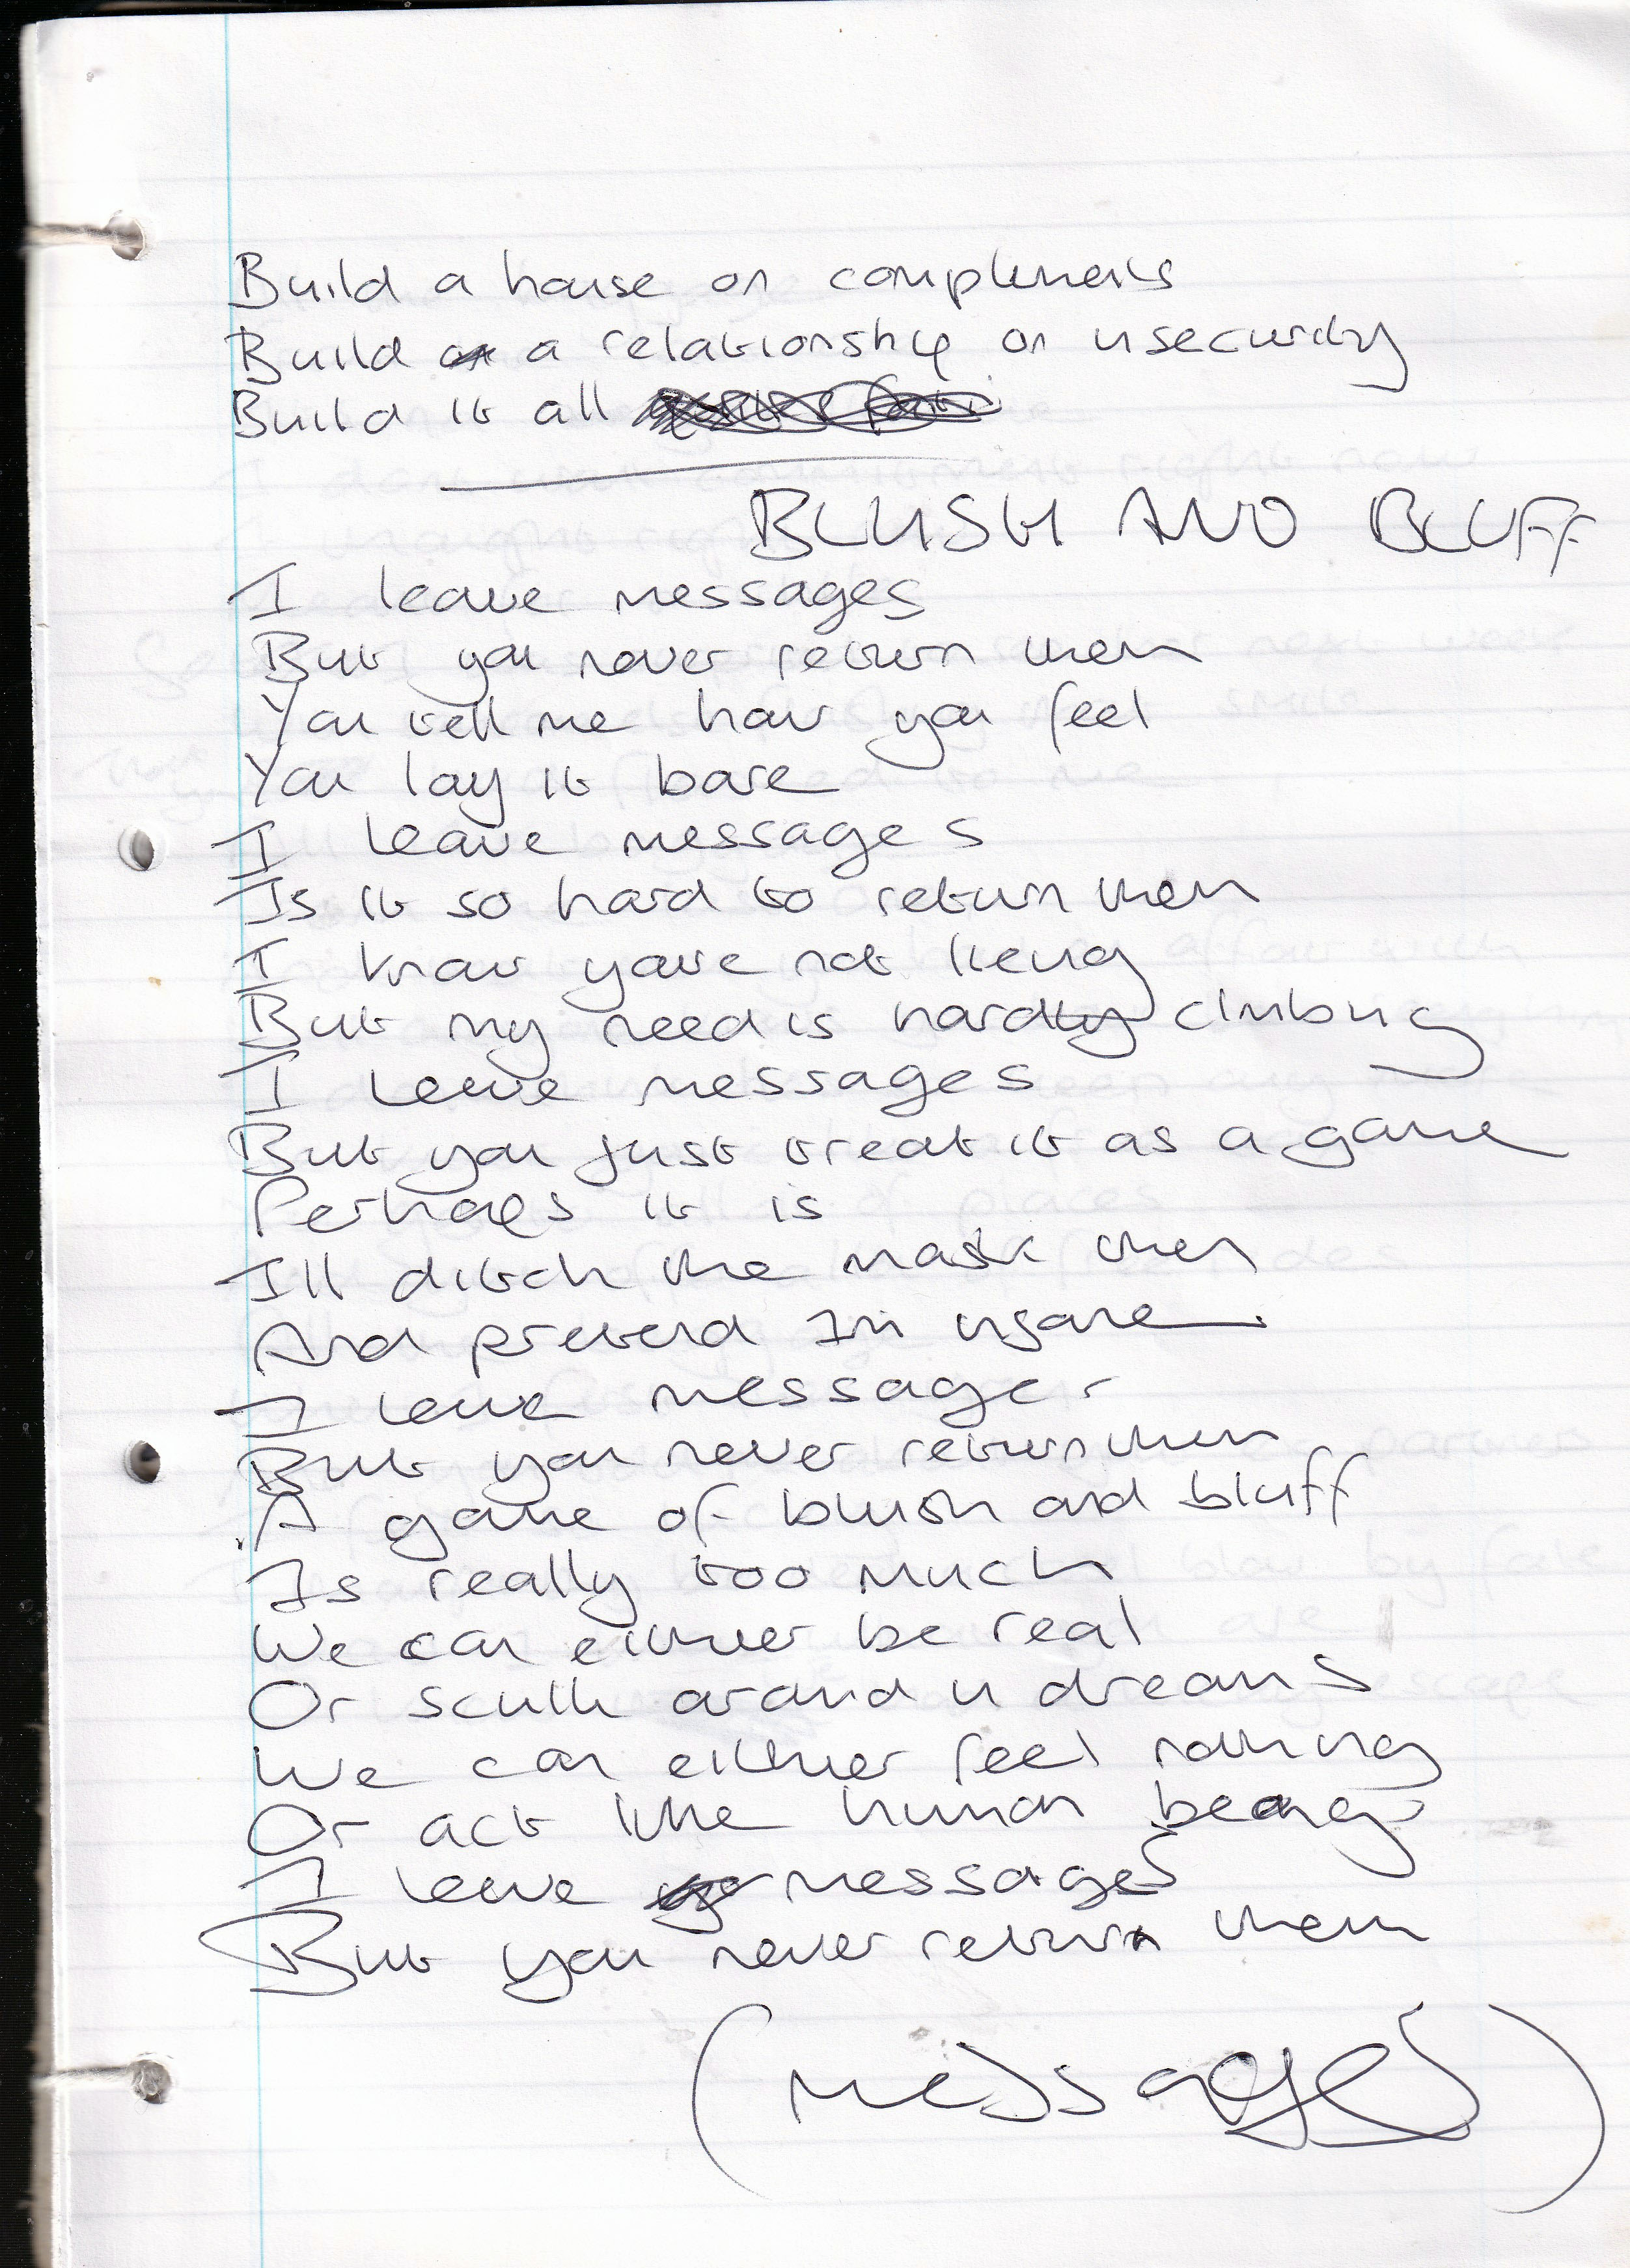 Build a house on compliments
Build a relationship on insecurity
Build it all
BLUSH AND BLUFF
I leave messages
But you never return them
You tell me how you feel
You lay it bare
I leave messages
Is it so hard to return them
I know youre not lieing
But my need is hard climbing
I leave messages
But you just treat it as a game
Perhaps it is
Ill ditch the mask then
And pretend Im insane.
I leave messages
But you never return them
A game of blush and bluff
Is really too much
We can either be real
Or sculk around in dreams
We can either feel nothing
Or act like human beings
I leave messages
But you never return them
(Messages)